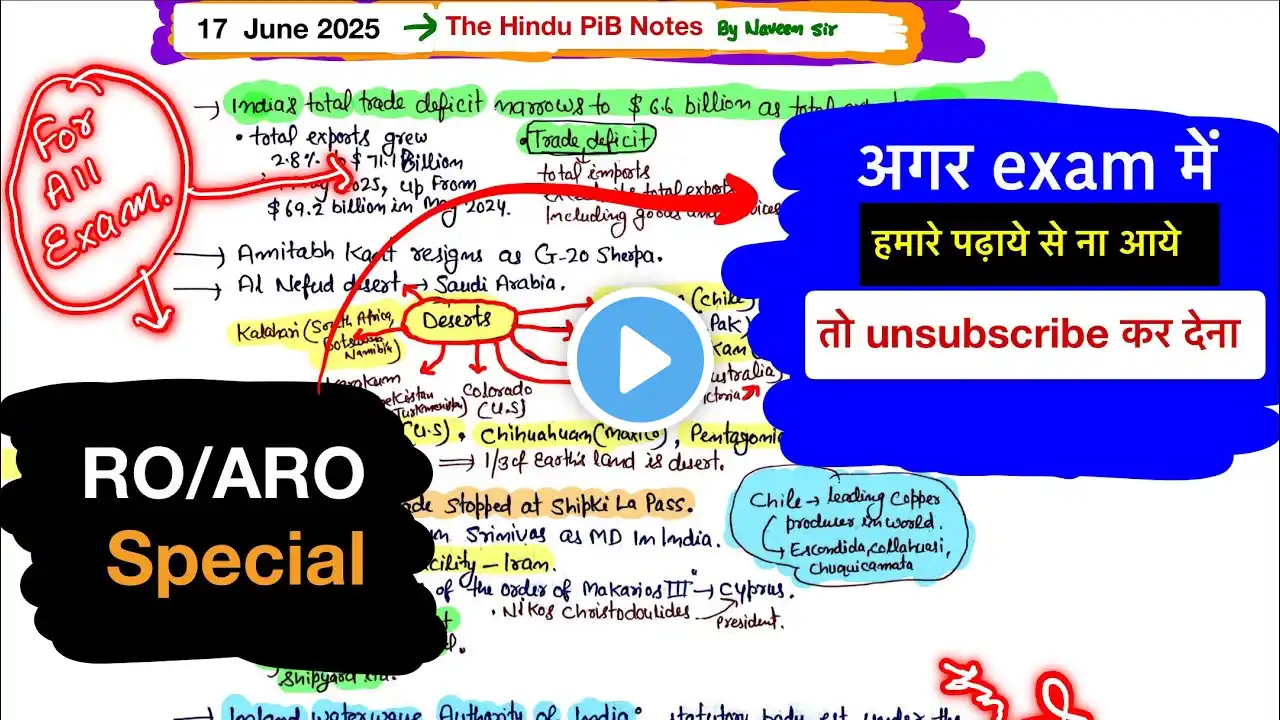 17 June 2025 → The Hindu PiB Notes By Naveen Sir
For
All
Exam.
→ India's total trade deficit narrows to $ 6.6 billion as total
• total exports grew
2.8% to $ 71.1 Billion
2025, up from
$ 69.2 billion in May 2024.
• Trade deficit
total imports
total exports
Including goods and services
→ Amitabh Kant resigns as G-20 Sherpa.
→ Al Nefud desert → Saudi Arabia.
Deserts
Kalahari (South Africa,
Botswana
Namibia)
(Chile)
Pak)
Colorado
(U.S)
Turkmenistan)
(U.S), Chihuahuan (Mexico), Pentagonia
⇒ 1/3 of Earth's land is desert.
stopped at Shipki La Pass.
Srinivas as MD in India.
– Iran.
of the order of Makarios III" → Cyprus.
• Nikos Christodoulides
President.
Shipyard Ltd.
→ Inland waterways Authority of India: statutory body est under the
Chile → leading Copper
producer in world.
→ Escondida, Collahuasi,
Chuquicamata
अगर exam में
हमारे पढ़ाये से ना आये
तो unsubscribe कर देना
RO/ARO
Special